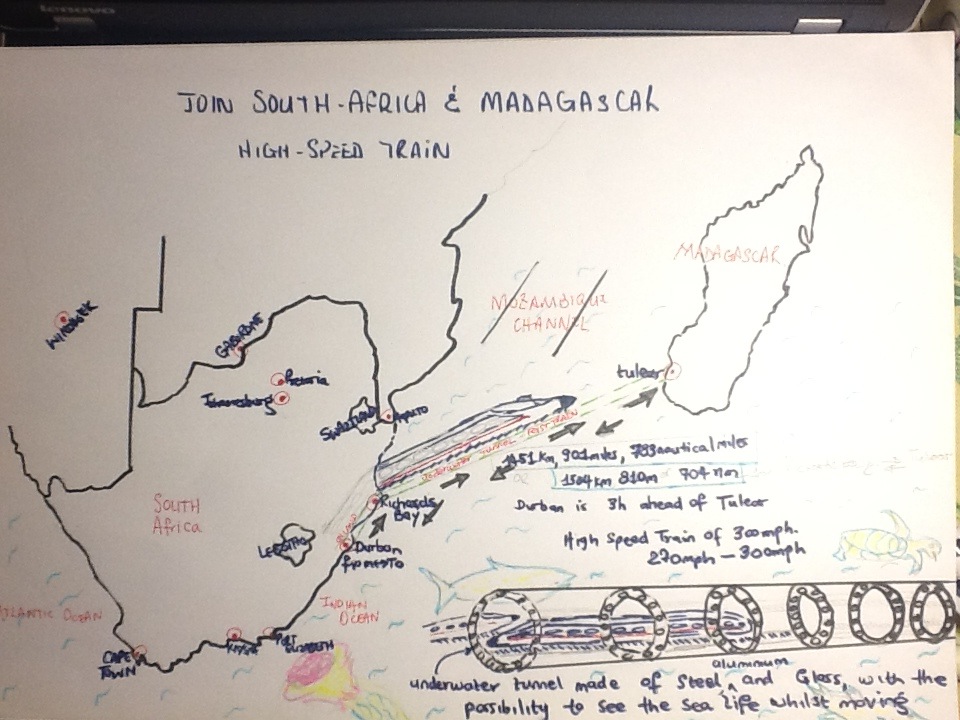 lenovo
JOIN SOUTH-AFRICA & MADAGASCAR
HIGH-SPEED TRAIN
MADAGASCAR
MOZAMBIQUE
CHANNEL
WINDHOEK
GABORONE
Pretoria
Johannesburg
SWAZILAND
MAPUTO
tulear
UNDERWATER TUNNEL FAST TRAIN
1451 km, 901 miles, 783 nautical miles
OR
1504 km 810m 704 nm
Richards
Bay
Durban is 3h ahead of Tulear
SOUTH
Africa
LESOTHO
Durban
from ESTO
High Speed Train of 300mph.
270mph - 300mph
ATLANTIC OCEAN
INDIAN
OCEAN
CAPE
TOWN
PORT
ELIZABETH
aluminum
underwater tunnel made of Steel ^ and Glass, with the
possibility to see the Sea Life whilst moving